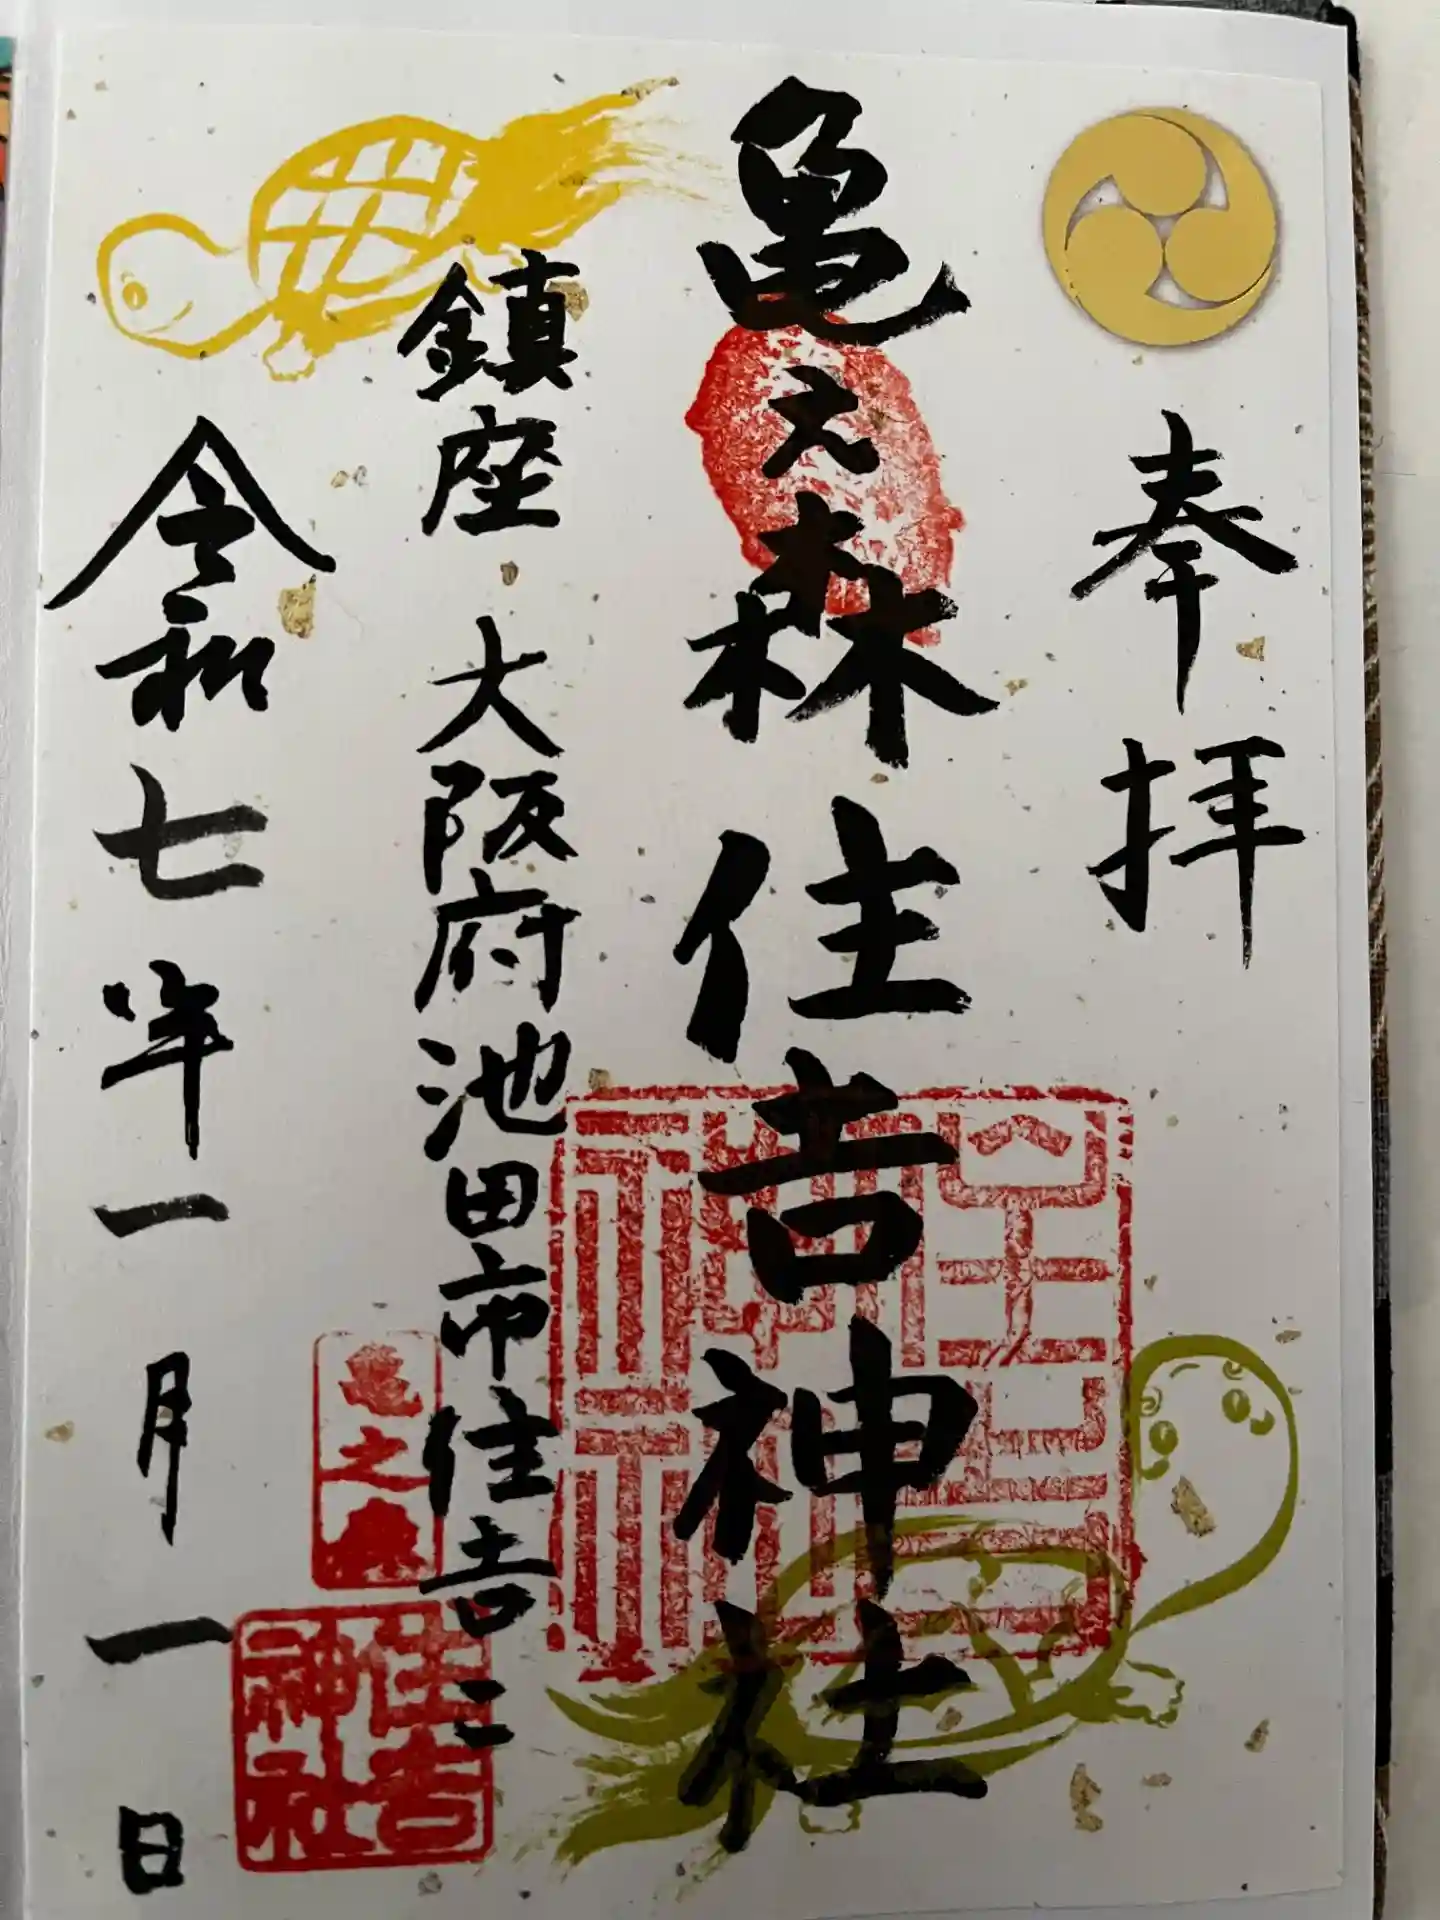 奉拝
亀之森住吉神社
鎮座 大阪府池田市住吉二
令和七年一月一日
住吉神社
亀之森
住吉神社